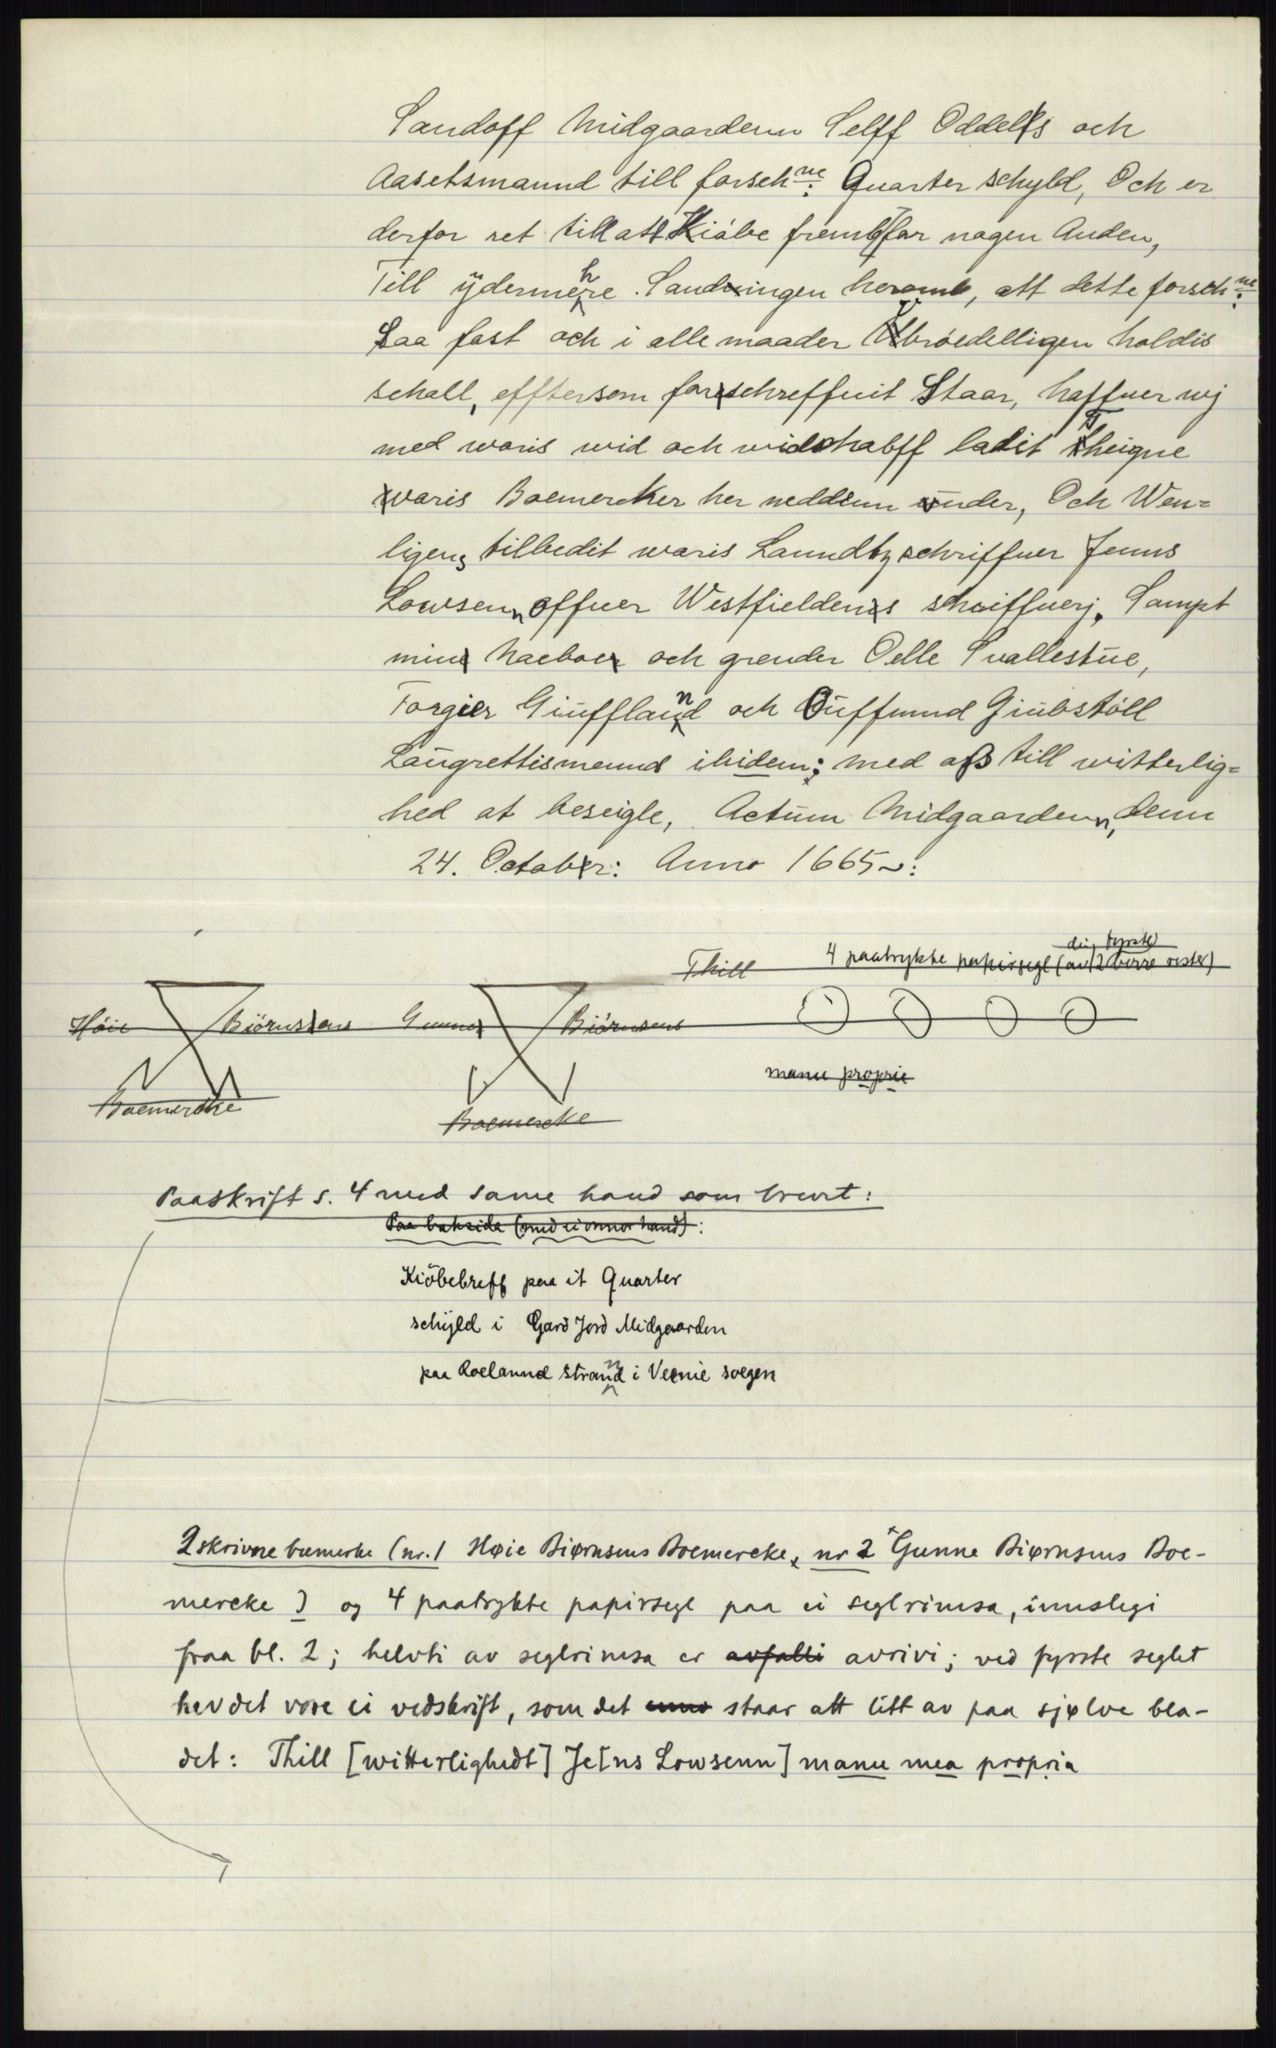 Sandoff Midgaardenn Selff Oddels och
Aasetsmannd till forsch ne: Quarter schyld, Och er
derfor ret till att Kióbe fremb for nogen Anden,
Till ÿdermehre Sandingen herom, att dette forsch ne:
Saa fast och i alle maader Vbróedelligen holdis
schall, efftersom forschreffuit Staar, haffuer wj
med woris wid och widschabff ladit Theigne
voris Boemercker her neddenn ünder, Och Wen=
ligens tilbedit woris Lanndtzschriffuer Jenns
Lowsenn offuer Westfieldens schriffuerj. Sampt
min Naeboe och grender Oelle Suallestüe,
Torgier Giüfflannd och Oüffuund Giübstöll
Laügrettismennd ibidem; med aß till witterlig=
hed at beseigle, Actüm Midgaardenn, denn
24. October: Anno 1665~:
din fyrste
Thill 4 paatrykte papirsegl (av 2 berre rester)
Höie Biörnsens Gunne Biörnsens
manu proprie
Boemercke Boemercke
Paaskrift s. 4 med same hand som brevet:
Paa baksida (med ei onnor hand):
Kiöbebreff paa it Quarter
schÿld i Gard Jord Midgaarden
paa Roelannd Strannd i Veenie soegen
2 skrivne bumerke (nr. 1 Høie Biørnsens Boemercke, nr 2 Gunne Biørnsens Boe-
mercke) og 4 paatrykte papirsegl paa ei seglrimsa, innslegi
fraa bl. 2; helvti av seglrimsa er avfalli avrivi; ved fyrste seglet
hev det vore ei vedskrift, som det enno staar att litt av paa sjølve bla-
det: Thill [witterlighedt] Je[ns Lowsenn] manu mea propria